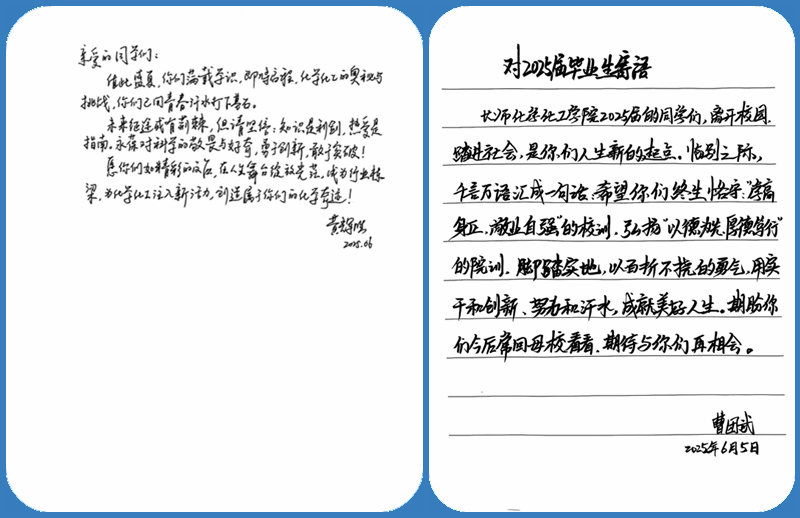 亲爱的同学们：
值此盛夏，你们满载学识，即将启程。化学化工的奥秘与
挑战，你们已用青春汗水打下基石。
未来征途或有荆棘，但请坚信：知识是利剑，热爱是
指南。永葆对科学的敬畏与好奇，勇于创新，敢于突破！
愿你们如精彩的反应，在人生舞台绽放光芒，成为行业栋
梁，为化学化工注入新活力，创造属于你们的化学奇迹！
2025.06
对2025届毕业生寄语
长师化学化工学院2025届的同学们，离开校园，
踏进社会，是你们人生新的起点。临别之际，
千言万语汇成一句话：希望你们终生恪守“学高
身正，敬业自强”的校训，弘扬“以德为先，厚德笃行”
的院训，脚踏实地，以百折不挠的勇气，用实
干和创新、努力和汗水，成就美好人生。期盼你
们今后常回母校看看，期待与你们再相会。
曹团武
2025年6月5日